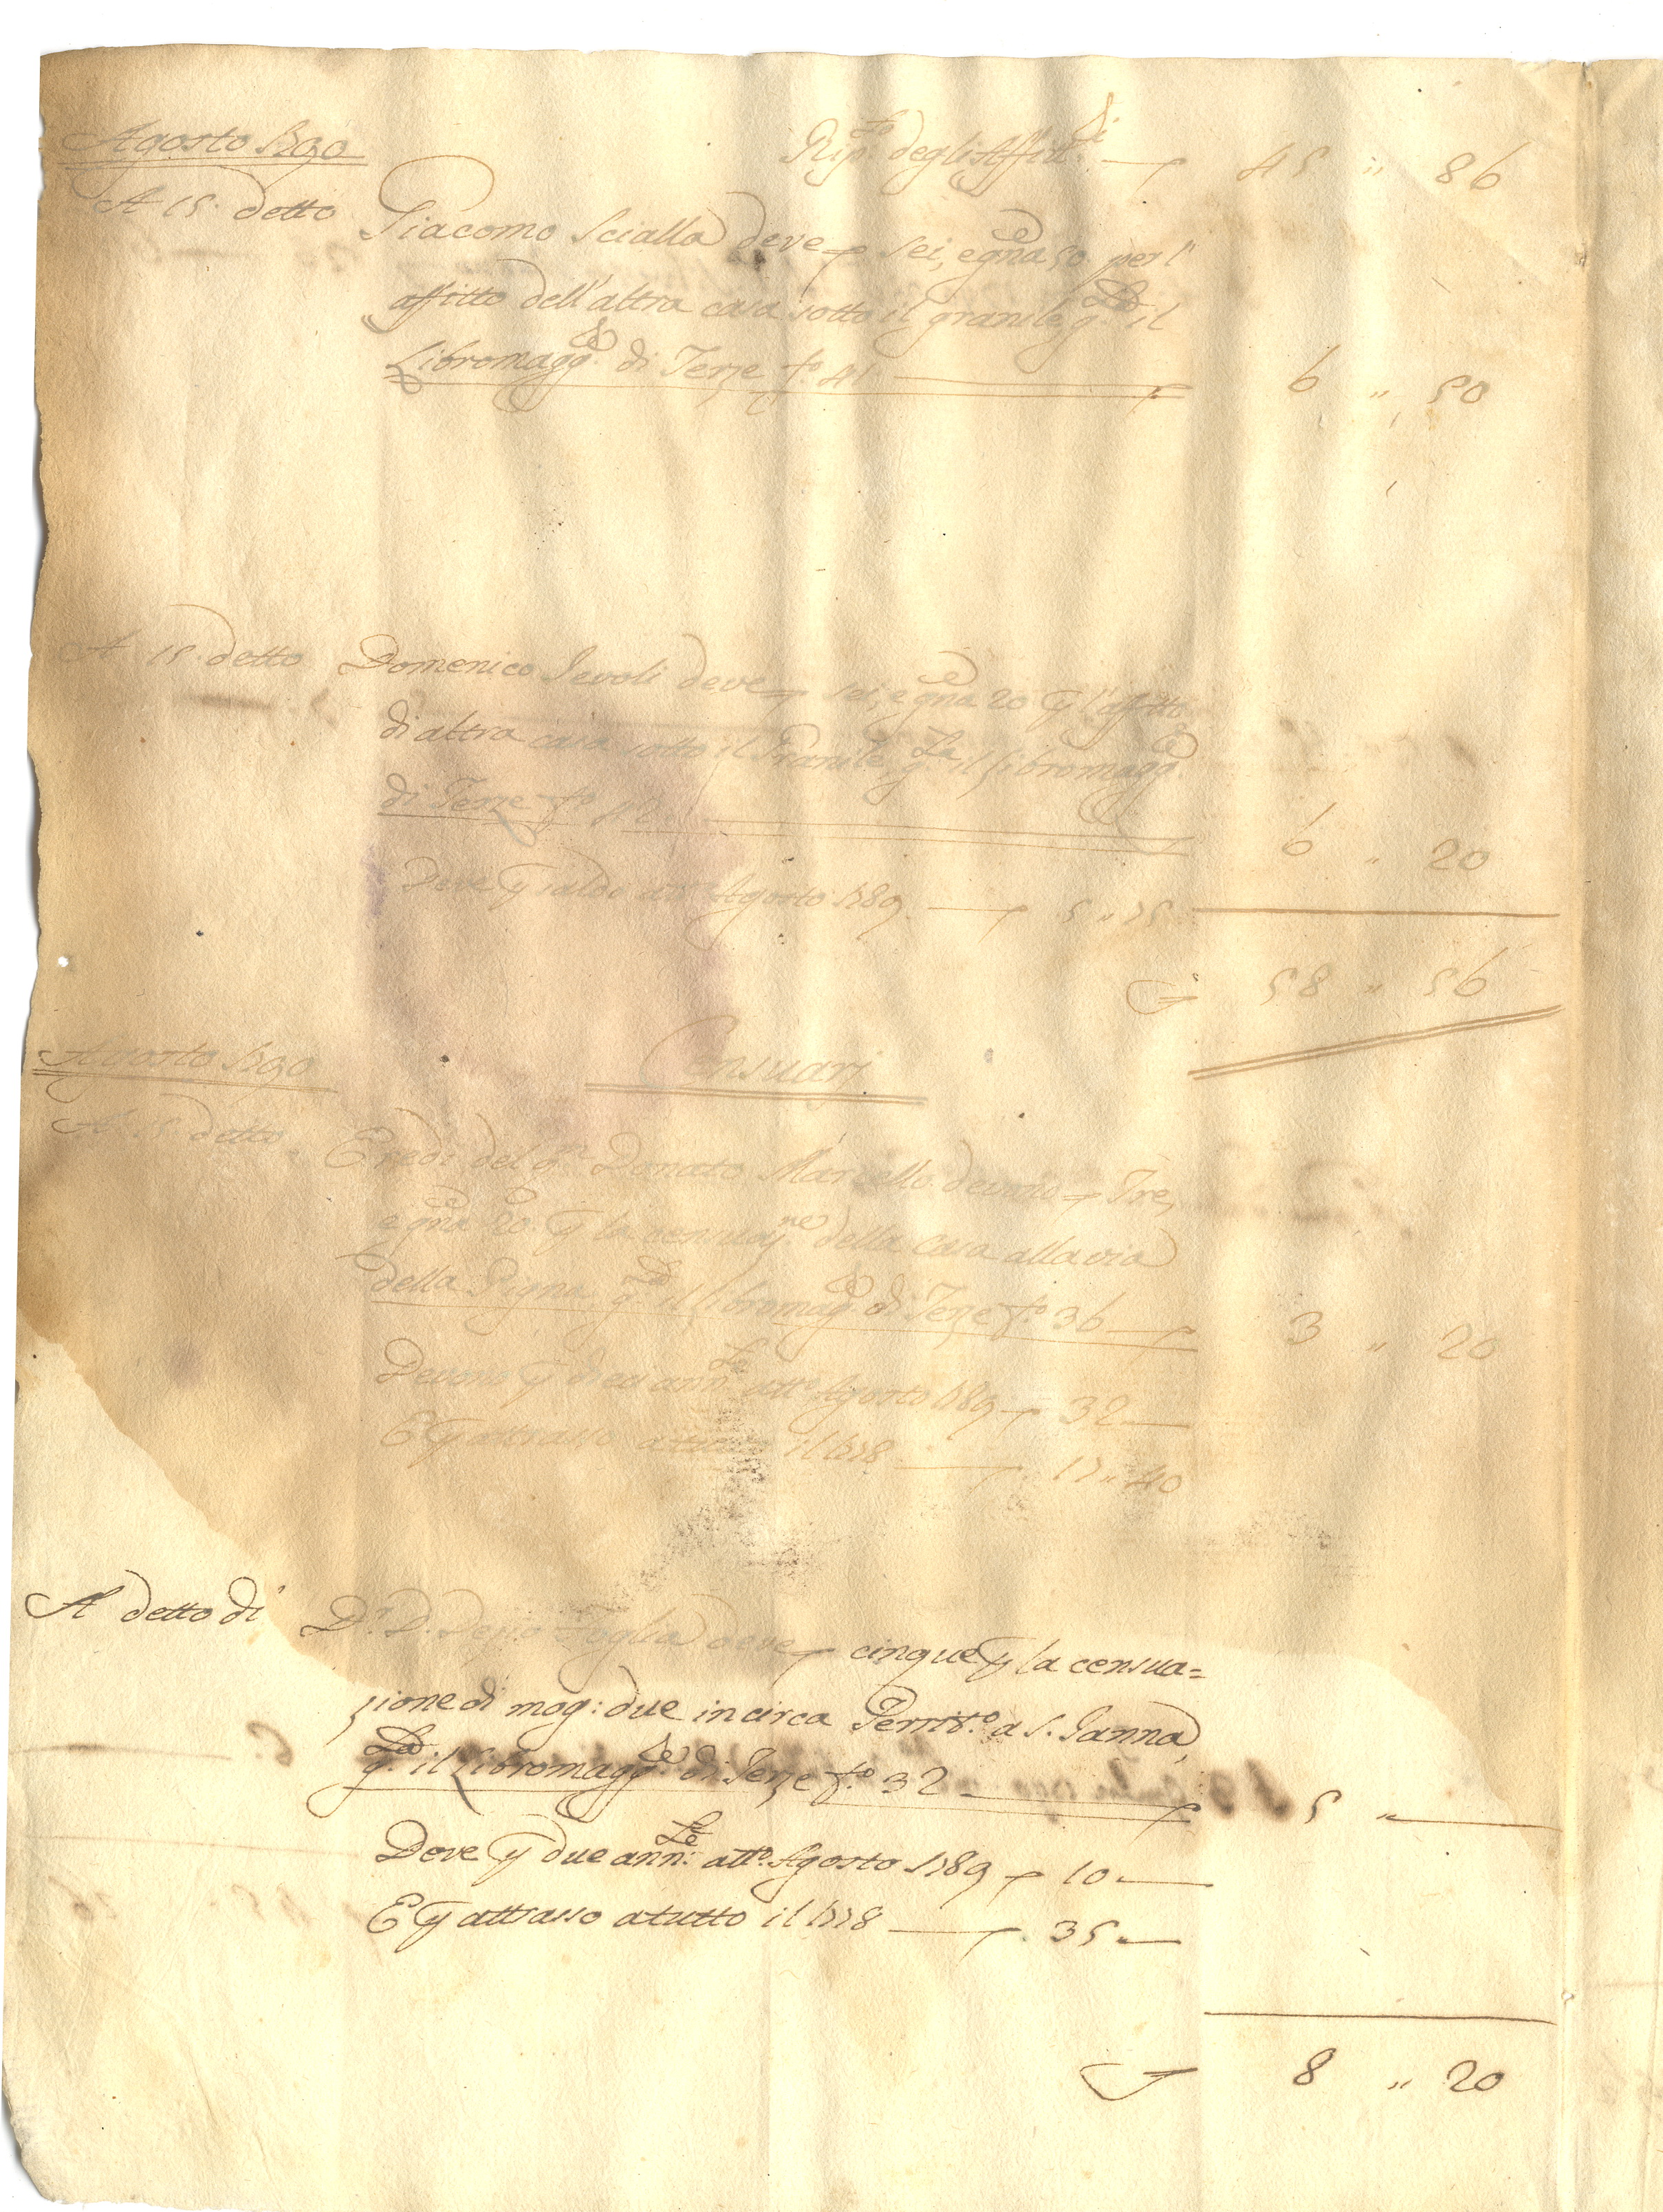 Agosto 1790
Rip.to degli Affitti — 45 " 86
A 15. detto Giacomo Scialla deve sei, e gna 50 per l'
affitto dell'altra casa sotto il granile, g.ta il
Libromagg.e di Terze f.o 41 — 6 " 50
A 15. detto Domenico Jevoli deve sei, e gna 20 p l'affitto
di altra casa sotto il Granile g.ta il Libromagg.e
di Terze f.o 42 — 6 " 20
Deve p saldo att.o Agosto 1789 — 5 " 75
58 " 56
Agosto 1790 Censuarj
A 15 detto Eredi del q.m Donato Marcello devono Tre,
e gna 20. p la censuaz.ne della casa alla via
della Pigna, g.ta il Libromag.e di Terze f.o 36 — 3 " 20
Devono p dieci ann.te att.o Agosto 1789 — 32 —
E p attrasso a tutto il 1778 — 17 " 40
A detto di D.r D. Foglia deve cinque p la censua=
zione di mog: due incirca Territ.o a S. Janna,
g.ta il Libromagg.e di Terze f.o 32 — 5 " —
Deve p due ann.te att.o Agosto 1789 — 10 —
E p attrasso a tutto il 1778 — 35 —
8 " 20